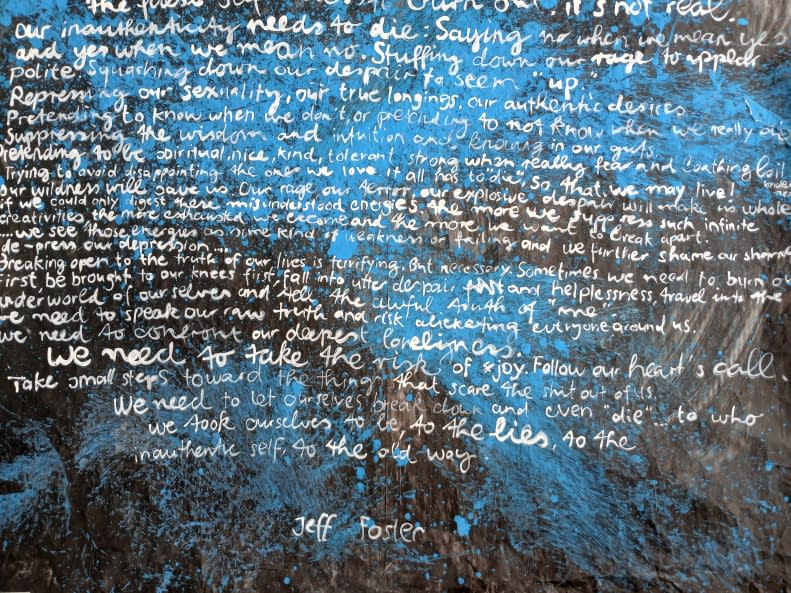 burn out. it's not real.
our inauthenticity needs to die: Saying no when we mean yes
and yes when we mean no. Stuffing down our rage to appear
polite. Squashing down our despair to seem "up".
Repressing our sexuality, our true longings, our authentic desires
Pretending to know when we don't, or pretending to not know when we really do
Suppressing the wisdom and intuition and knowing in our guts.
Pretending to be spiritual, nice, kind, tolerant strong when really fear and loathing boil
Trying to avoid disappointing the ones we love it all has to "die". So that we may live!
our wildness will save us. Our rage our terror our explosive despair will make us whole
if we could only digest these misunderstood energies. the more we suppress such infinite
creativities the more exhausted we become and the more we want to break apart.
...we see those energies as some kind of weakness or failing and we further shame our shame
de-press our depression...
Breaking open to the truth of our lives is terrifying. But necessary. Sometimes we need to burn out
First, be brought to our knees first, fall into utter despair and helplessness, travel into the
underworld of ourselves and tell the awful truth of "me"
we need to speak our raw truth and risk alienating everyone around us.
we need to confront our deepest loneliness.
We need to take the risk of joy. Follow our heart's call.
Take small steps toward the things that scare the shit out of us.
We need to let ourselves break down and even "die"... to who
we took ourselves to be, to the lies, to the
inauthentic self, to the old way.
Jeff Foster